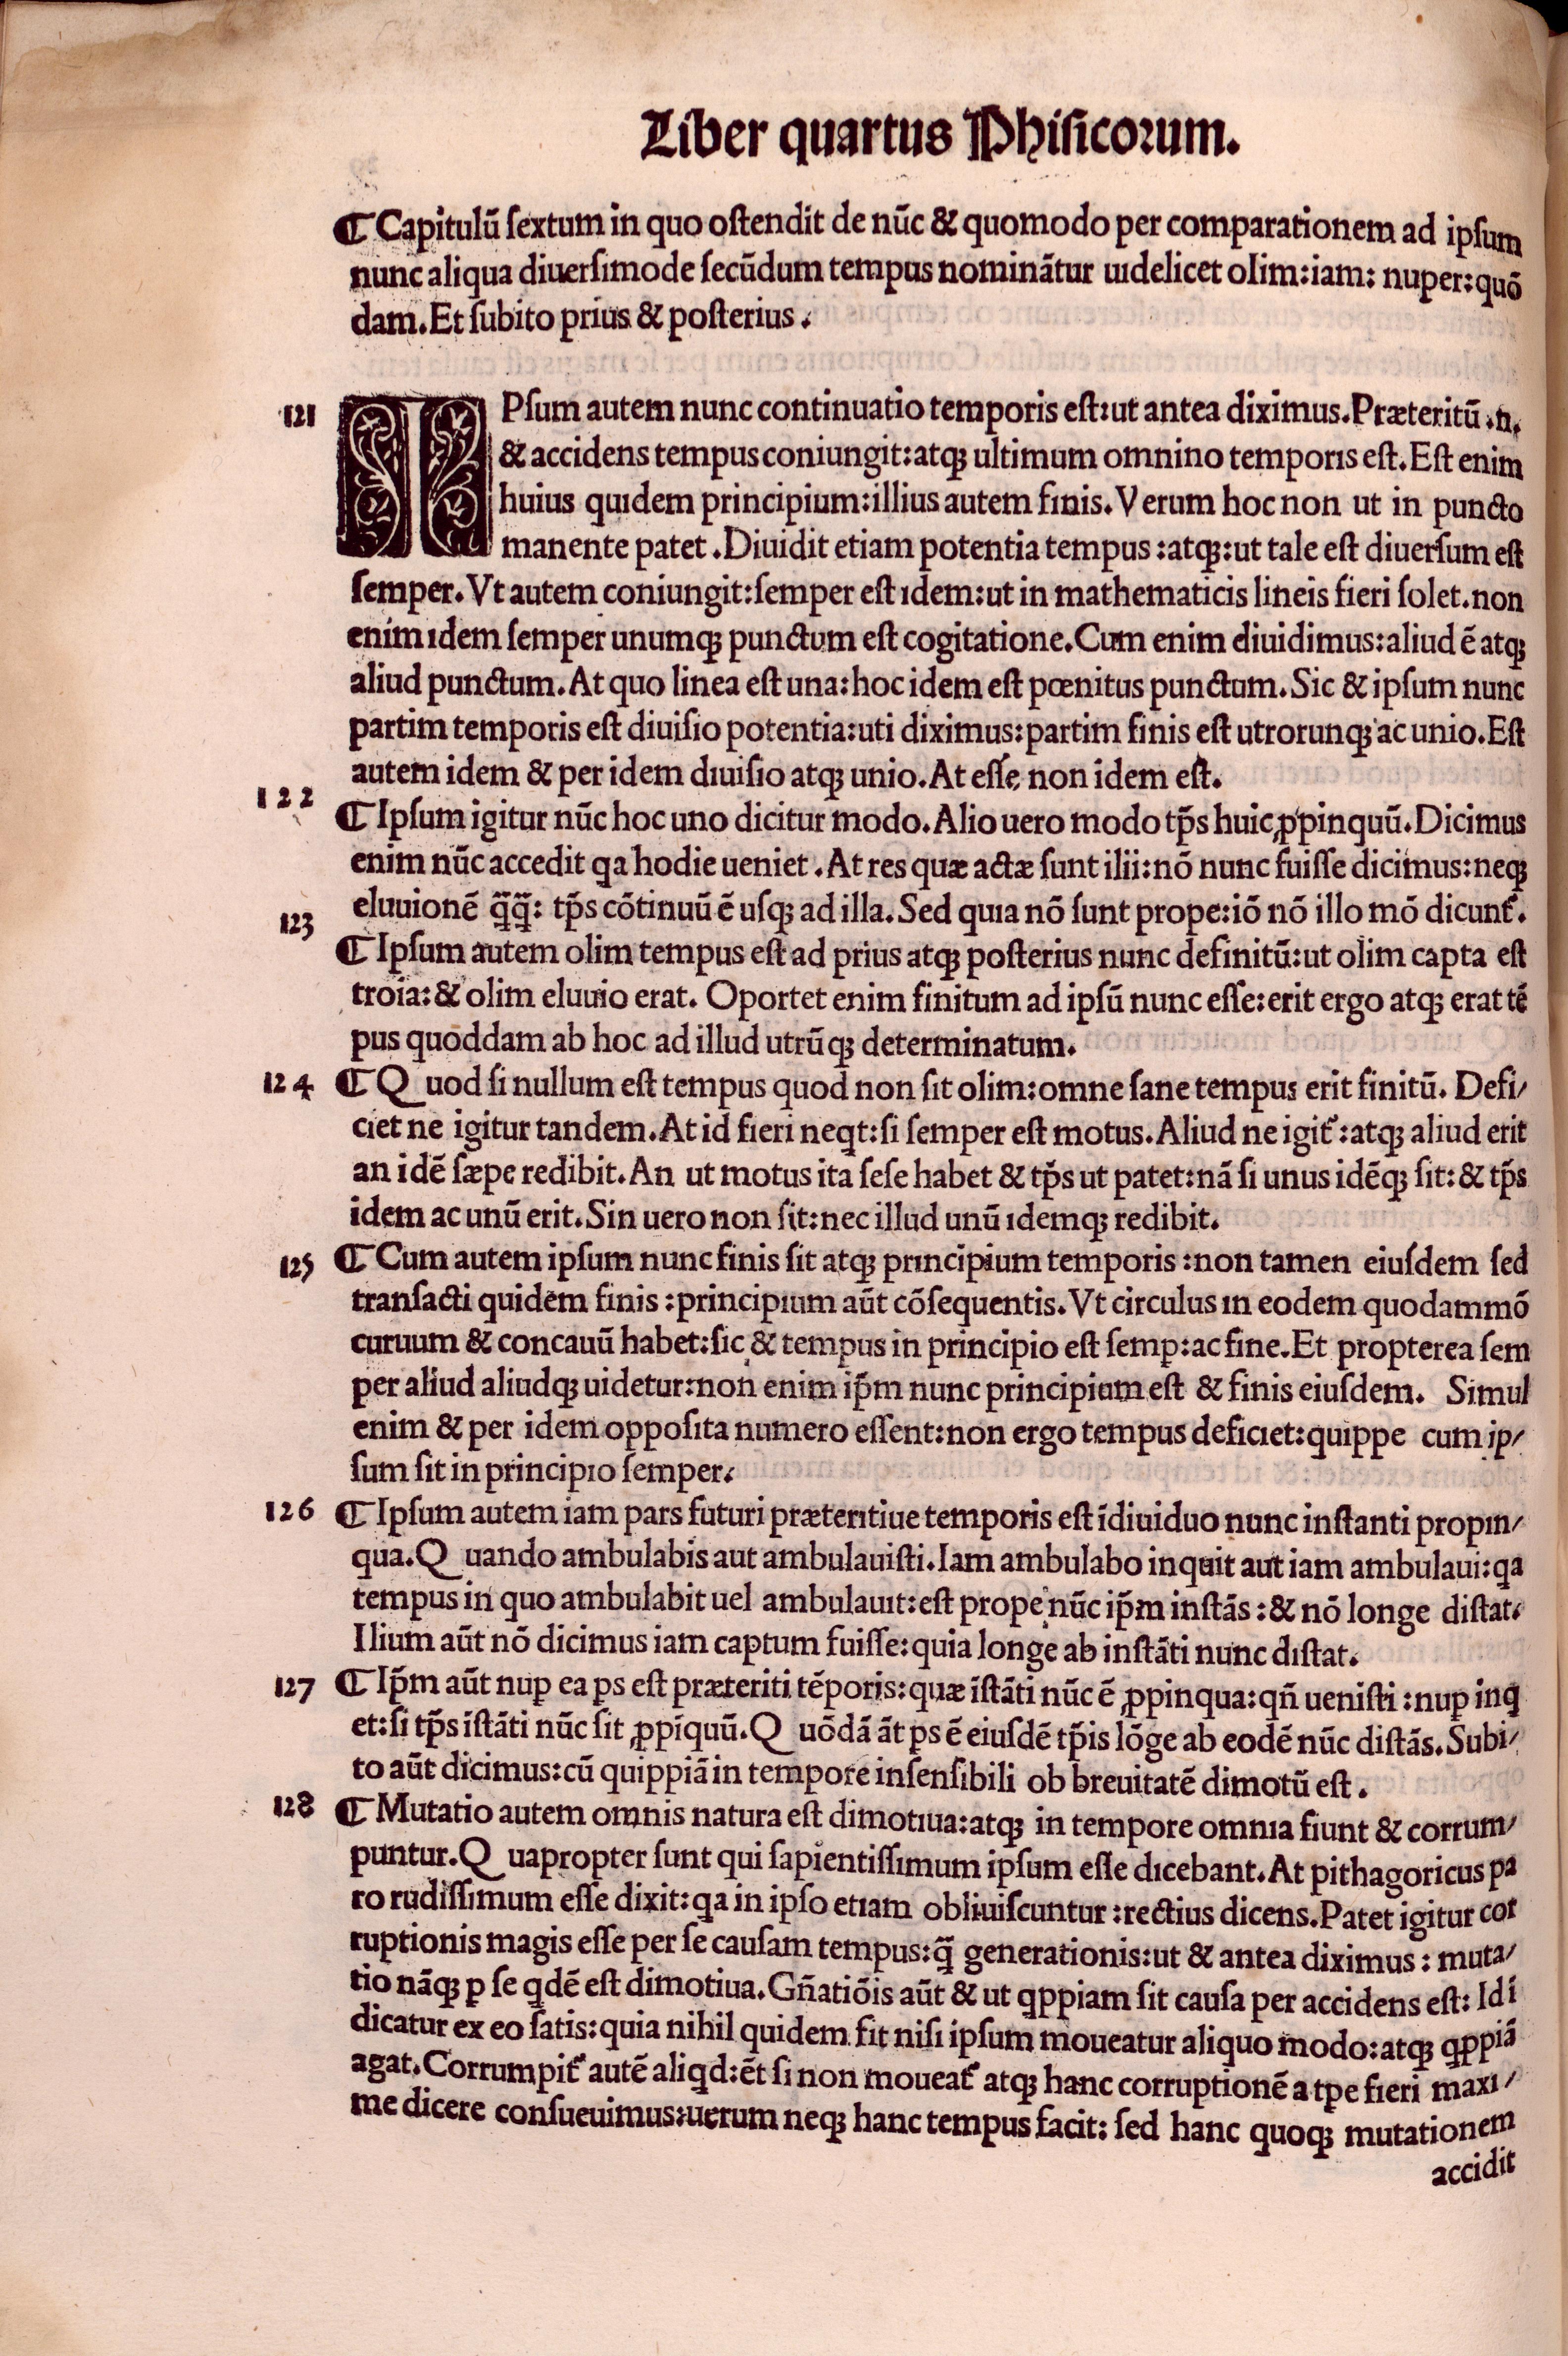 Liber quartus Phisicorum.
¶ Capitulū sextum in quo ostendit de nūc & quomodo per comparationem ad ipsum
nunc aliqua diuersimode secūdum tempus nominātur uidelicet olim:iam: nuper:quō
dam. Et subito prius & posterius.
121 IPsum autem nunc continuatio temporis est:ut antea diximus. Præteritū .n.
& accidens tempus coniungit:atqꝫ ultimum omnino temporis est. Est enim
huius quidem principium:illius autem finis. Verum hoc non ut in puncto
manente patet. Diuidit etiam potentia tempus :atqꝫ:ut tale est diuersum est
semper. Vt autem coniungit:semper est idem:ut in mathematicis lineis fieri solet. non
enim idem semper unumqꝫ punctum est cogitatione. Cum enim diuidimus:aliud ē atqꝫ
aliud punctum. At quo linea est una:hoc idem est pœnitus punctum. Sic & ipsum nunc
partim temporis est diuisio potentia:uti diximus:partim finis est utrorunqꝫ ac unio. Est
autem idem & per idem diuisio atqꝫ unio. At esse non idem est.
122 ¶ Ipsum igitur nūc hoc uno dicitur modo. Alio uero modo tp̄s huic ꝓpinquū. Dicimus
enim nūc accedit qa hodie ueniet. At res quæ actæ sunt ilii:nō nunc fuisse dicimus:neqꝫ
eluuionē q̄q̄: tp̄s cōtinuū ē usqꝫ ad illa. Sed quia nō sunt prope:iō nō illo mō dicunt̃.
123 ¶ Ipsum autem olim tempus est ad prius atqꝫ posterius nunc definitū:ut olim capta est
troia:& olim eluuio erat. Oportet enim finitum ad ipsū nunc esse:erit ergo atqꝫ erat tē
pus quoddam ab hoc ad illud utrūqꝫ determinatum.
124 ¶ Q uod si nullum est tempus quod non sit olim:omne sane tempus erit finitū. Defi/
ciet ne igitur tandem. At id fieri neqt:si semper est motus. Aliud ne igit̃:atqꝫ aliud erit
an idē sæpe redibit. An ut motus ita sese habet & tp̄s ut patet:nā si unus idēqꝫ sit:& tp̄s
idem ac unū erit. Sin uero non sit:nec illud unū idemqꝫ redibit.
125 ¶ Cum autem ipsum nunc finis sit atqꝫ principium temporis :non tamen eiusdem sed
transacti quidem finis :principium aūt cōsequentis. Vt circulus in eodem quodammō
curuum & concauū habet:sic & tempus in principio est semꝑ:ac fine. Et propterea sem
per aliud aliudqꝫ uidetur:non enim ip̄m nunc principium est & finis eiusdem. Simul
enim & per idem opposita numero essent:non ergo tempus deficiet:quippe cum ip/
sum sit in principio semper.
126 ¶ Ipsum autem iam pars futuri præteritiue temporis est īdiuiduo nunc instanti propin/
qua. Q uando ambulabis aut ambulauisti. Iam ambulabo inquit aut iam ambulaui:qa
tempus in quo ambulabit uel ambulauit:est prope nūc ip̄m instās :& nō longe distat.
Ilium aūt nō dicimus iam captum fuisse:quia longe ab instāti nunc distat.
127 ¶ Ip̄m aūt nuꝑ ea ps est præteriti tēporis:quæ īstāti nūc ē ꝓpinqua:qn̄ uenisti :nuꝑ inq
et:si tp̄s īstāti nūc sit ꝓpīquū. Q uōdā āt ps ē eiusdē tp̄is lōge ab eodē nūc distās. Subi/
to aūt dicimus:cū quippiā in tempore insensibili ob breuitatē dimotū est.
128 ¶ Mutatio autem omnis natura est dimotiua:atqꝫ in tempore omnia fiunt & corrum/
puntur. Q uapropter sunt qui sapientissimum ipsum esse dicebant. At pithagoricus pa
ro rudissimum esse dixit:qa in ipso etiam obliuiscuntur :rectius dicens. Patet igitur cor
ruptionis magis esse per se causam tempus:q̄ generationis:ut & antea diximus : muta/
tio nāqꝫ ꝑ se qdē est dimotiua. Gn̄atiōis aūt & ut qppiam sit causa per accidens est: Id ī
dicatur ex eo satis:quia nihil quidem fit nisi ipsum moueatur aliquo modo:atqꝫ qppiā
agat. Corrumpit̃ autē aliqd:ēt si non moueat̃ atqꝫ hanc corruptionē a tpe fieri maxi/
me dicere consueuimus:uerum neqꝫ hanc tempus facit: sed hanc quoqꝫ mutationem
accidit